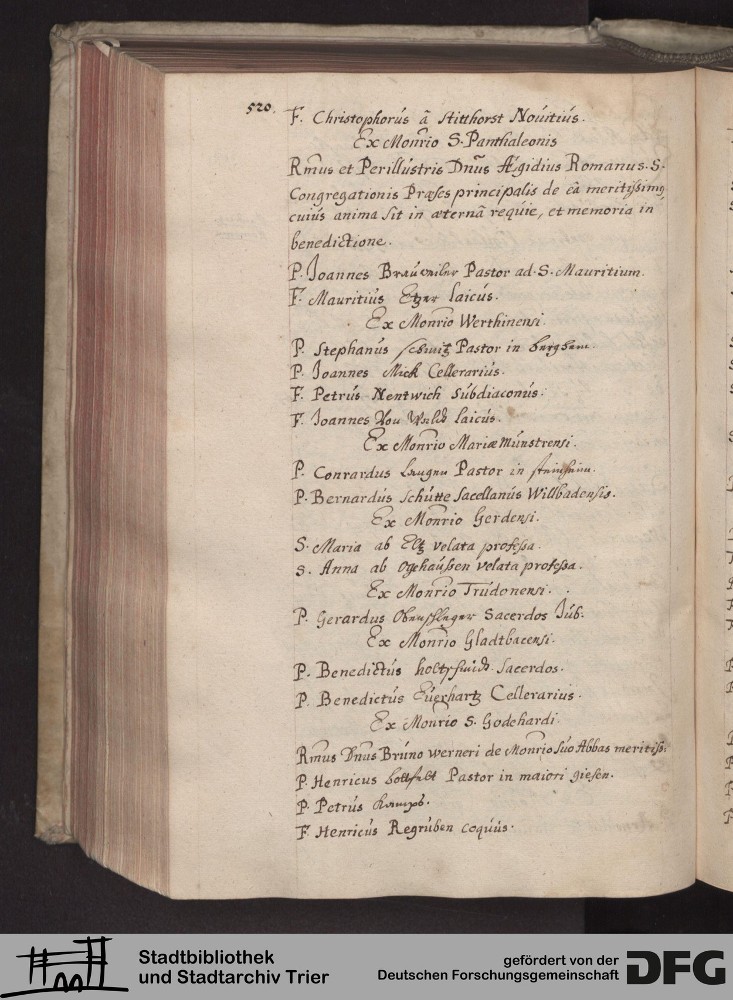 520.
F. Christophorus â Stitthorst Nouitius.
Ex Monrio S. Panthaleonis
Rmus et Perillustris Dnus Ægidius Romanus S.
Congregationis Præses principalis de eâ meritissimg,
cuius anima sit in æternâ requie, et memoria in
benedictione.
P. Joannes Brauweiler Pastor ad S. Mauritium.
F. Mauritius Etzer laicus.
Ex Monrio Werthinensi.
P. Stephanus Schmitz Pastor in berghem.
P. Joannes Mick Cellerarius.
F. Petrus Nentwich Subdiaconus.
F. Joannes Von laicus.
Ex Monrio Mariæmünstrensi.
P. Conrardus Langen Pastor in steinheim.
P. Bernardus Schütte Sacellanus Willbadensis.
Ex Monrio Gerdensi.
S. Maria ab Eltz velata professa.
S. Anna ab velata professa.
Ex Monrio Trudonensi.
P. Gerardus Sacerdos Jub.
Ex Monrio Gladtbacensi.
P. Benedictus Sacerdos.
P. Benedictus Euerhartz Cellerarius.
Ex Monrio S. Godehardi
Rmus Dnus Bruno werneri de Monrio suo Abbas meritiss.
P. Henricus Pastor in maiori giesen.
P. Petrus Kamps.
F. Henricus Regruben coquus.
Stadtbibliothek
und Stadtarchiv Trier
gefördert von der
Deutschen Forschungsgemeinschaft
DFG